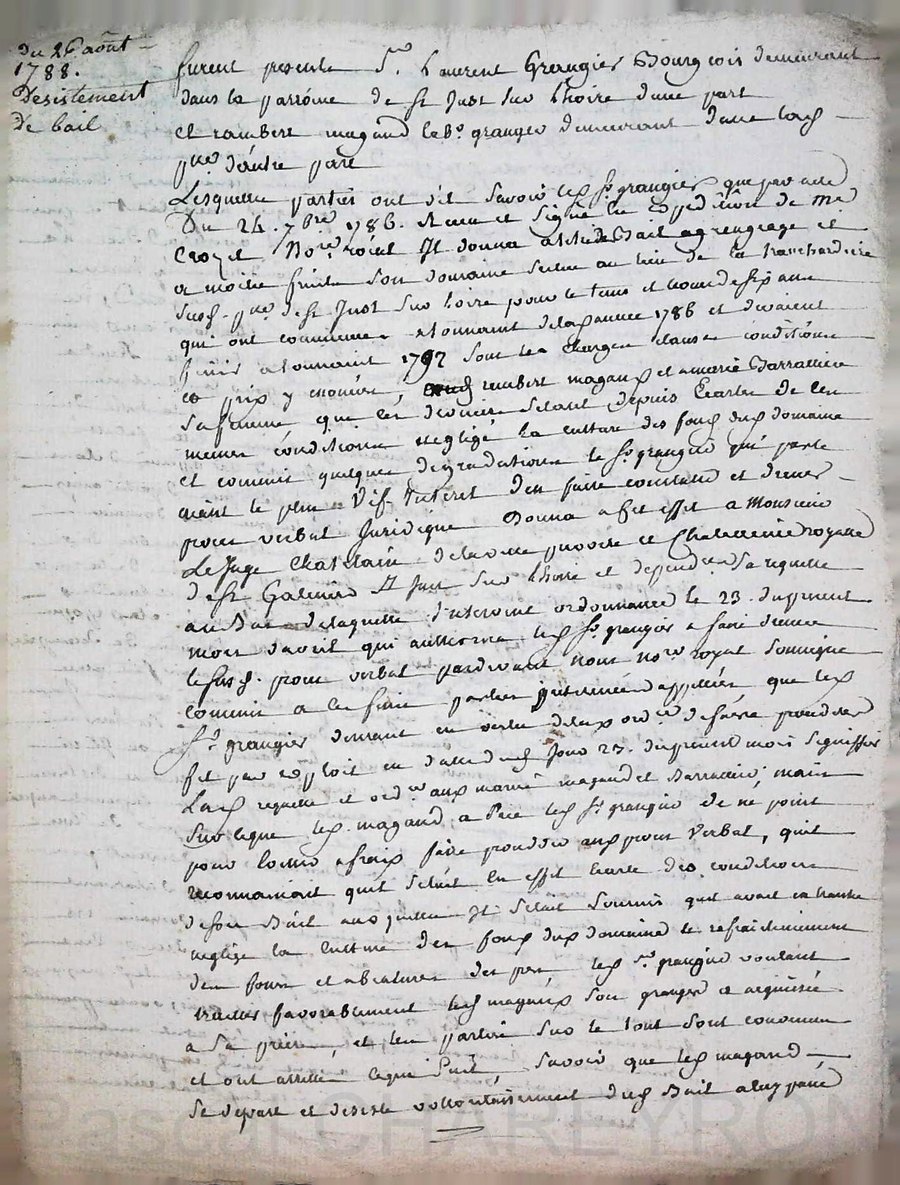 du 26 août
1788.
Desistement
de bail
furent presents Sr. Laurent Grangier Bourgeois demeurant
dans la parroisse de St Just sur Lhoire d'une part
et rambert magand granger demeurant dans lad
psse d'autre part
Lesquelles parties ont dit savoir led Sr grangier que par acte
Du 24. 7bre 1786. et signé de me
Crozet Nore roial Il donna a titre de Bail a grangeage et
a moitié fruits son domaine situé au lieu de la
susd. psse de St Just sur Loire pour le tems et de six ans
qui ont commencé a la toussaint de la année 1786 et devaient
finir a la toussaint 1792 sous les charges clauses conditions
et prix y enoncés, rambert magand et marie Barrallon
sa femme que ces derniers s'etant depuis ecartés de ces
memes conditions negligé la culture des fonds dud domaine
et commis quelques degradations le Sr grangier qui parle
aiant le plus vif Interet d'en faire constater et dresser
procès verbal Juridique Donna a cet effet a Monsieur
Le Juge Chatelain de la ville prevoté et Chatellenie royalle
de St Galmier St Just sur Lhoire et dependces sa requette
au Bas de laquelle Intervint ordonnance le 23. du present
mois qui authorise led Sr grangier a faire dresser
led procès verbal pardevant nous nore royal soussigné
commis a ces fins parties presentes ou appellées, que led
Sr grangier en vertu de lad ordce
fit par exploit en date du jour 27. du present mois signiffier
Lad requette et ordce aux mariés magand et Barrallon, mais
sur ce que led. magand a Prié led Sr grangier de ne point
pour faire proceder aud procès verbal, qu'il
reconnaissait qu'il s'etait en effet ecarté des conditions
de son Bail auxquelles Il s'etait soumis qu'il avait
negligé la culture des fonds dud domaine le
des fossés et des prés, led Sr grangier voulant
traitter favorablement led magand son granger a acquiescé
a sa priere, et les parties sur le tout sont convenues
et ont arretté ce qui suit, savoir que led magand
se depart et desiste vollontairement dud Bail a luy passé
Pascal CHAREYRON